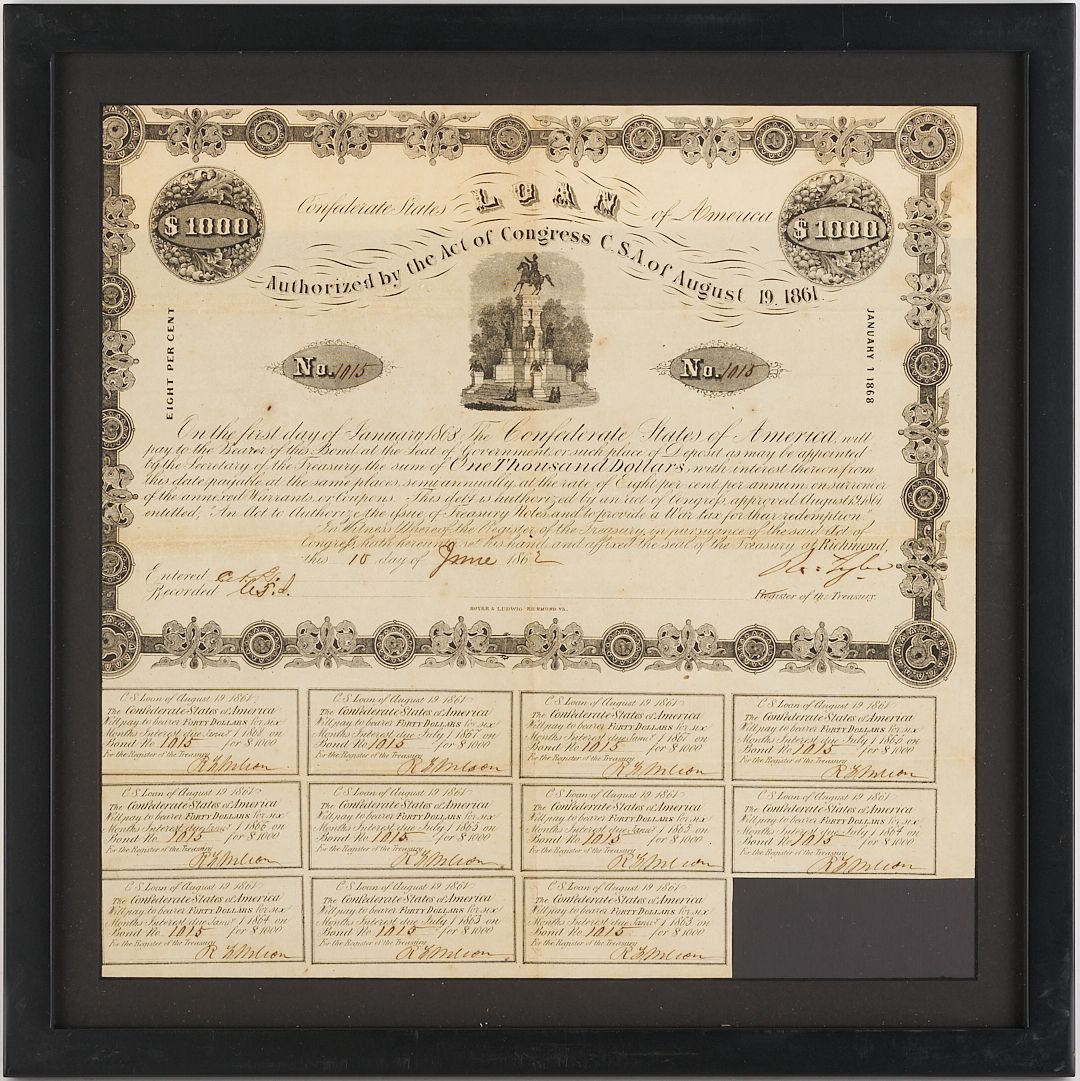 Confederate States LOAN of America
Authorized by the Act of Congress C.S.A. of August 19, 1861
$1000
$1000
EIGHT PER CENT
JANUARY 1 1868
No. 1015
No. 1015
On the first day of January 1868 The Confederate States of America will
pay to the Bearer of this Bond at the Seat of Government, or such place of Deposit as may be appointed
by the Secretary of the Treasury the sum of One Thousand Dollars, with interest thereon from
this date payable at the same places semiannually at the rate of Eight per cent per annum on surrender
of the annexed Warrants, or Coupons. This debt is authorized by an act of Congress, approved August 19 1861
entitled, "An Act to Authorize the issue of Treasury Notes, and to provide a War tax for their redemption."
In Witness Whereof the Register of the Treasury, in pursuance of the said Act of
Congress, hath hereunto set his hand, and affixed the Seal of the Treasury at Richmond,
this 10 day of June 1862
Entered
Recorded
Ro. Tyler
Register of the Treasury.
HOYER & LUDWIG RICHMOND VA.
C.S. Loan of August 19 1861
The Confederate States of America
Will pay to bearer FORTY DOLLARS for six
Months Interest due Jany 1 1868 on
Bond No 1015 for $1000
For the Register of the Treasury
C.S. Loan of August 19 1861
The Confederate States of America
Will pay to bearer FORTY DOLLARS for six
Months Interest due July 1 1867 on
Bond No 1015 for $1000
For the Register of the Treasury
C.S. Loan of August 19 1861
The Confederate States of America
Will pay to bearer FORTY DOLLARS for six
Months Interest due Jany 1 1867 on
Bond No 1015 for $1000
For the Register of the Treasury
C.S. Loan of August 19 1861
The Confederate States of America
Will pay to bearer FORTY DOLLARS for six
Months Interest due July 1 on
Bond No 1015 for $1000
For the Register of the Treasury
C.S. Loan of August 19 1861
The Confederate States of America
Will pay to bearer FORTY DOLLARS for six
Months Interest due Jany 1 1866 on
Bond No 1015 for $1000
For the Register of the Treasury
C.S. Loan of August 19 1861
The Confederate States of America
Will pay to bearer FORTY DOLLARS for six
Months Interest due July 1 1865 on
Bond No 1015 for $1000
For the Register of the Treasury
C.S. Loan of August 19 1861
The Confederate States of America
Will pay to bearer FORTY DOLLARS for six
Months Interest due Jany 1 1865 on
Bond No 1015 for $1000
For the Register of the Treasury
C.S. Loan of August 19 1861
The Confederate States of America
Will pay to bearer FORTY DOLLARS for six
Months Interest due July 1 1864 on
Bond No 1015 for $1000
For the Register of the Treasury
C.S. Loan of August 19 1861
The Confederate States of America
Will pay to bearer FORTY DOLLARS for six
Months Interest due Jany 1 1864 on
Bond No 1015 for $1000
For the Register of the Treasury
C.S. Loan of August 19 1861
The Confederate States of America
Will pay to bearer FORTY DOLLARS for six
Months Interest due July 1 1863 on
Bond No 1015 for $1000
For the Register of the Treasury
C.S. Loan of August 19 1861
The Confederate States of America
Will pay to bearer FORTY DOLLARS for six
Months Interest due Jany 1 1863 on
Bond No 1015 for $1000
For the Register of the Treasury